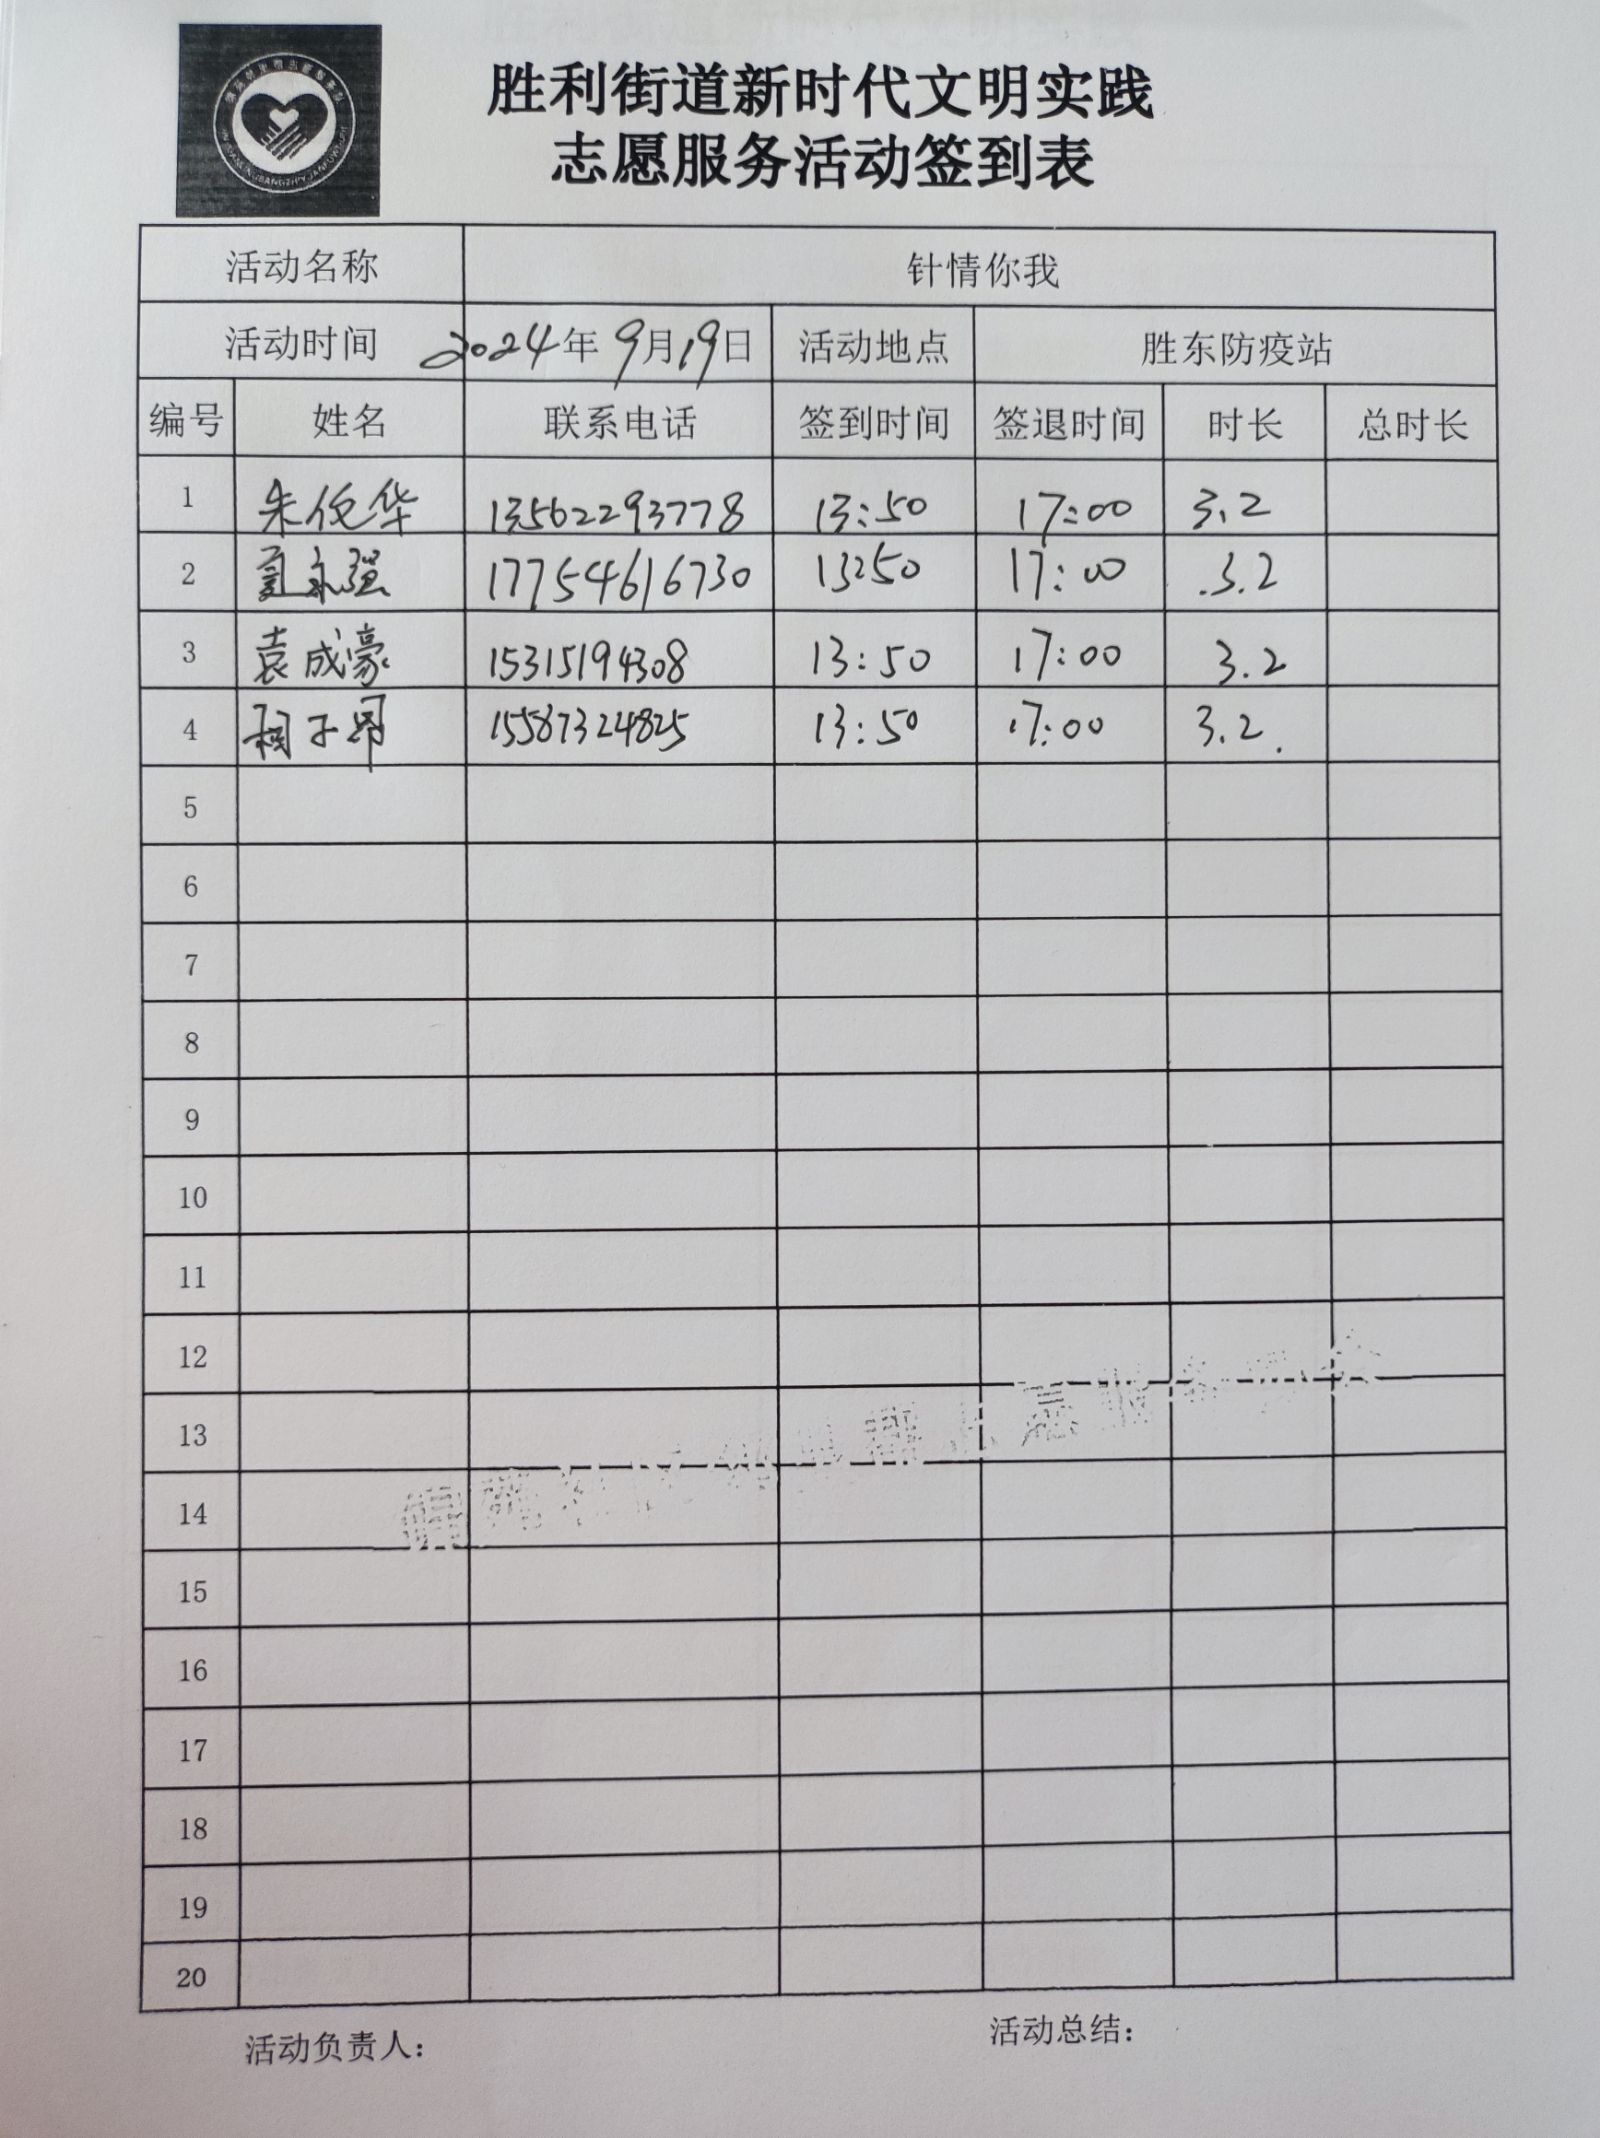 胜利街道新时代文明实践
志愿服务活动签到表
活动名称 针情你我
活动时间 2024年9月19日 活动地点 胜东防疫站
编号 姓名 联系电话 签到时间 签退时间 时长 总时长
1 朱伯华 13562293778 13:50 17:00 3.2
2 夏永强 17754616730 13:50 17:00 3.2
3 袁成豪 15315194308 13:50 17:00 3.2
4 子昂 15587324825 13:50 17:00 3.2
5
6
7
8
9
10
11
12
13
14
15
16
17
18
19
20
活动负责人： 活动总结：